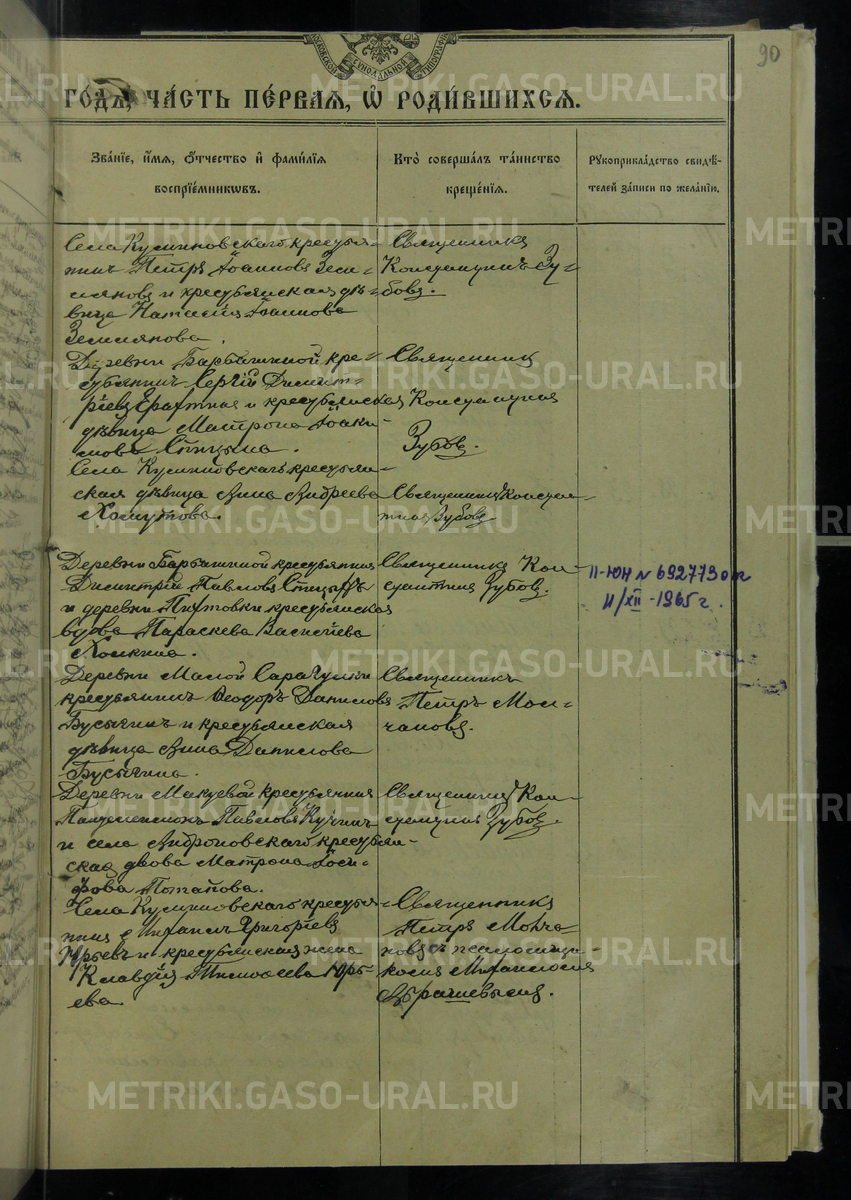 90
МОСКОВСКОЙ СѴНОДАЛЬНОЙ ТИПОГРАФІИ
ГО́ДА, ЧА́СТЬ ПЕ́РВАЯ, Ѡ҆ РОДИ́ВШИХСЯ.
Зва́нїе, и҆́мя, о҆́тчество и҆ фами́лїя
воспрїе́мниковъ.
Кто̀ соверша́лъ та́инство
креще́нїя.
Рꙋкоприкла́дство свидѣ́-
телей за́писи по жела́нїю.
Села Кулиновскаго крестья-
нинъ Петръ Іоанновъ Земл-
ляновъ и крестьянская дѣ-
вица Наталія Іоаннова
Землянова.
Священникъ
Константинъ Зу-
бовъ.
Деревни Барбашиной кре-
стьянинъ Сергій Димит-
ріевъ и крестьянская
дѣвица Матрона Іоаки-
мова Спицына.
Священникъ
Константинъ
Зубовъ.
Села крестьян-
ская дѣвица Анна Андреева
Хомутова.
Священникъ Констан-
тинъ Зубовъ
Деревни Барбашиной крестьянинъ
Димитрій Павловъ Спицынъ
и деревни крестьянская
вдова Параскева Василіева
Священникъ Кон-
стантинъ Зубовъ.
II-ЮН № 6927730
11/XII-1965 г.
Деревни Малой Сарагулки
крестьянинъ Ѳеодоръ Даниловъ
Бусыгинъ и крестьянская
дѣвица Анна Данилова
Бусыгина.
Священникъ
Петръ Мол-
чановъ.
Деревни крестьянинъ
Пантелеимонъ Павловъ
и села крестьян-
ская вдова Матрона Іоси-
фова Потапова.
Священникъ Кон-
стантинъ Зубовъ.
Села крестья-
нинъ Михаилъ Григоріевъ
Юрьевъ и крестьянская жена
Клавдія Юрь-
ева.
Священникъ
Петръ Молча-
новъ съ псаломщи-
комъ Михаиломъ
METRIKI.GASO-URAL.RU